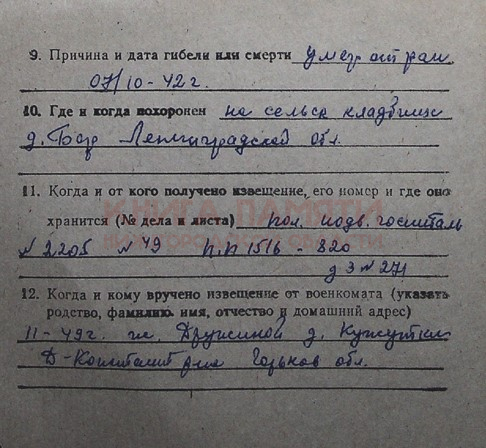 9. Причина и дата гибели или смерти умер от ран
07/10-42 г.
10. Где и когда похоронен на сельск кладбище
д. Бор Ленинградской обл.
11. Когда и от кого получено извещение, его номер и где оно
хранится (№ дела и листа) пол. подв. госпиталь
№ 2205 № 49 п.п 1516 - 820
д 3 № 271
12. Когда и кому вручено извещение от военкомата (указать
родство, фамилию, имя, отчество и домашний адрес)
11-49 г. Дружиной д.
Д-Константи Горьков обл.
КНИГА ПАМЯТИ